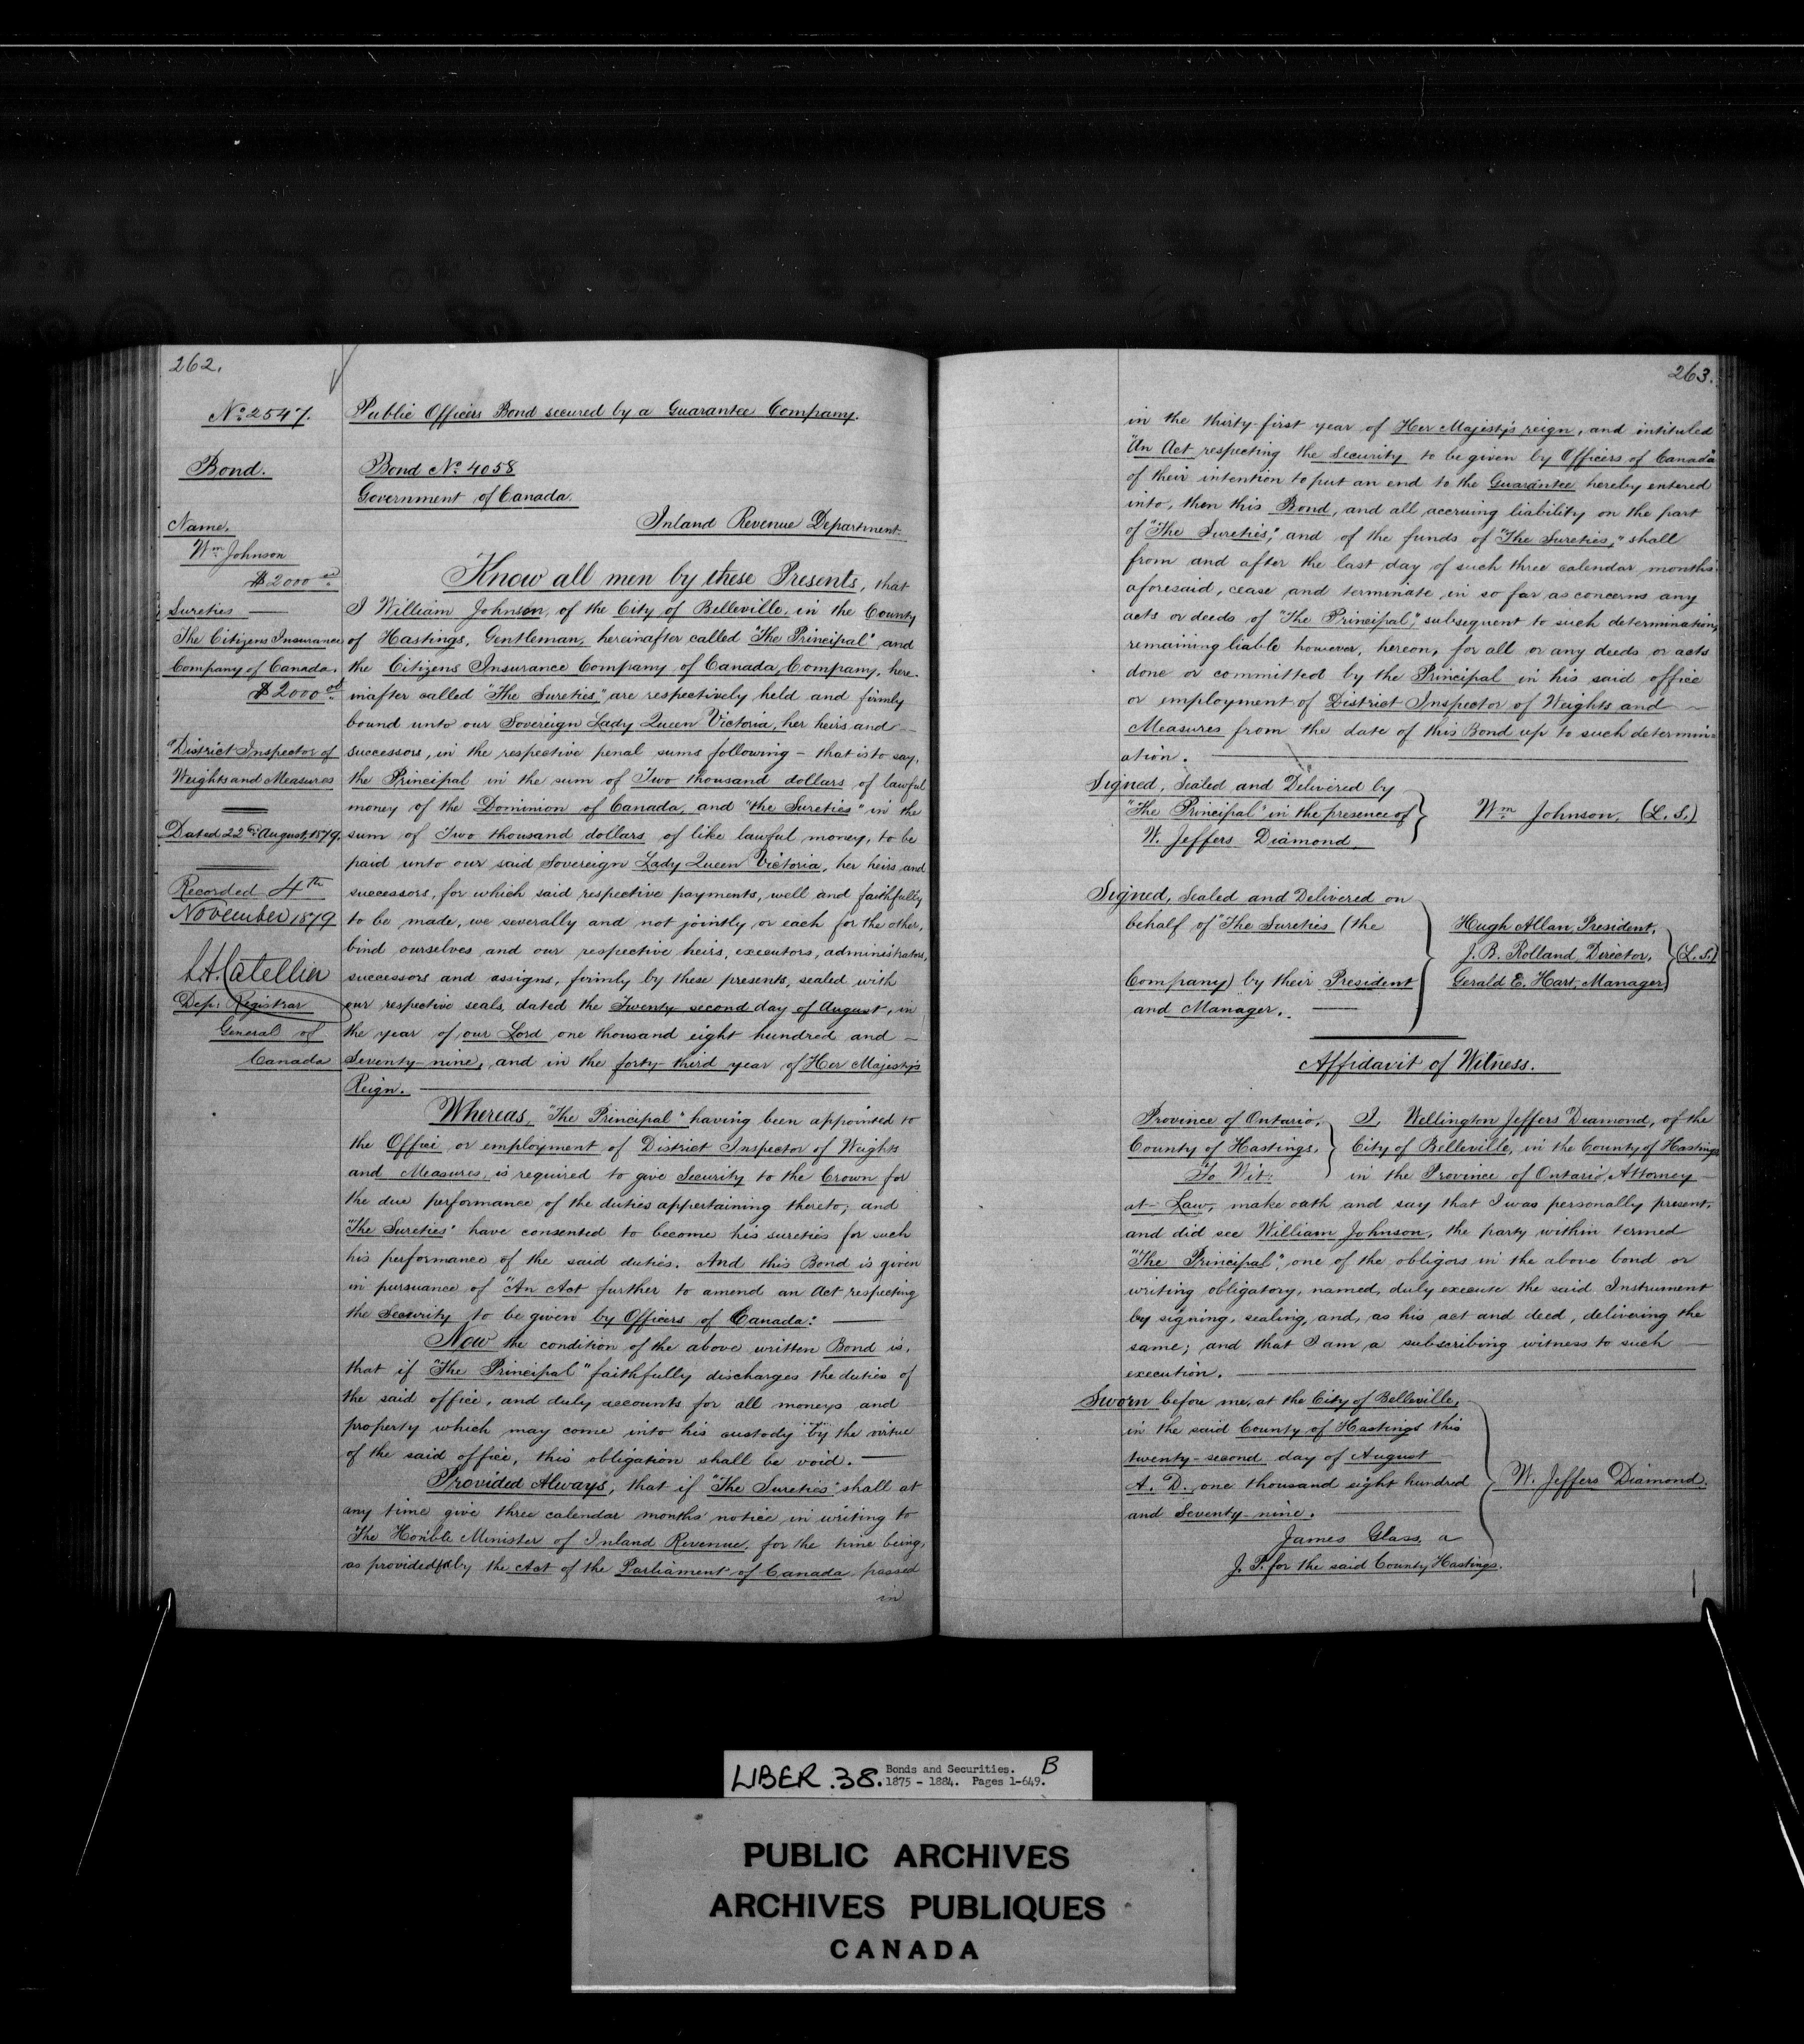 262.
No. 2547.
Bond.
Name.
Wm Johnson
$2000 00
Sureties —
The Citizens Insurance
Company of Canada.
$2000 00
District Inspector of
Weights and Measures
Dated 22nd August, 1879.
Recorded 4th
November 1879
L. A. Catellier
Dep: Registrar
General of
Canada
Public Officers Bond secured by a Guarantee Company.
Bond No. 4058
Government of Canada.
Inland Revenue Department.
Know all men by these Presents, that
I William Johnson, of the City of Belleville, in the County
of Hastings, Gentleman, hereinafter called "The Principal" and
the Citizens Insurance Company of Canada, Company, here-
inafter called "The Sureties," are respectively held and firmly
bound unto our Sovereign Lady Queen Victoria, her heirs and —
successors, in the respective penal sums following — that is to say,
the Principal in the sum of Two thousand dollars of lawful
money of the Dominion of Canada, and "the Sureties" in the
sum of Two thousand dollars of like lawful money, to be
paid unto our said Sovereign Lady Queen Victoria, her heirs and
successors, for which said respective payments, well and faithfully
to be made, we severally and not jointly or each for the other,
bind ourselves and our respective heirs, executors, administrators,
successors and assigns, firmly by these presents, sealed with
our respective seals, dated the Twenty second day of August, in
the year of our Lord one thousand eight hundred and —
Seventy nine, and in the forty-third year of Her Majesty's
Reign.
Whereas, "The Principal" having been appointed to
the Office or employment of District Inspector of Weights
and Measures, is required to give Security to the Crown for
the due performance of the duties appertaining thereto; and
"The Sureties" have consented to become his sureties for such
his performance of the said duties. And this Bond is given
in pursuance of "An Act further to amend an Act respecting
the Security to be given by Officers of Canada: —
Now the condition of the above written Bond is,
that if "The Principal" faithfully discharges the duties of
the said office, and duly accounts for all moneys and
property which may come into his custody by the virtue
of the said office, this obligation shall be void. —
Provided Always, that if "The Sureties" shall at
any time give three calendar months' notice in writing to
The Honble Minister of Inland Revenue, for the time being,
as provided for by the Act of the Parliament of Canada, passed
in
263.
in the thirty-first year of Her Majesty's reign, and intituled
"An Act respecting the Security to be given by Officers of Canada"
of their intention to put an end to the Guarantee hereby entered
into, then this Bond, and all accruing liability on the part
of "The Sureties," and of the funds of "The Sureties," shall
from and after the last day of such three calendar months
aforesaid, cease and terminate, in so far as concerns any
acts or deeds of "The Principal", subsequent to such determination,
remaining liable however, hereon, for all or any deeds or acts
done or committed by the Principal in his said office
or employment of District Inspector of Weights and —
Measures from the date of this Bond up to such determin=
ation.
Signed, Sealed and Delivered by
"The Principal" in the presence of
W. Jeffers Diamond
Wm Johnson. (L. S.)
Signed, Sealed and Delivered on
behalf of "The Sureties (the
Company) by their President
and Manager. —
Hugh Allan President,
J. B. Rolland, Director,
Gerald E. Hart, Manager
(L. S.)
Affidavit of Witness.
Province of Ontario,
County of Hastings,
To Wit:
I, Wellington Jeffers Diamond, of the
City of Belleville, in the County of Hastings
in the Province of Ontario, Attorney —
at Law, make oath and say that I was personally present,
and did see William Johnson, the party within termed
"The Principal", one of the obligors in the above bond or
writing obligatory, named, duly execute the said Instrument
by signing, sealing, and, as his act and deed, delivering the
same; and that I am a subscribing witness to such —
execution.
Sworn before me, at the City of Belleville,
in the said County of Hastings this
twenty-second day of August
A. D. one thousand eight hundred
and Seventy-nine.
James Glass, a
J. P. for the said County Hastings.
W. Jeffers Diamond.
LIBER .38. Bonds and Securities. B
1875 - 1884. Pages 1-649.
PUBLIC ARCHIVES
ARCHIVES PUBLIQUES
CANADA